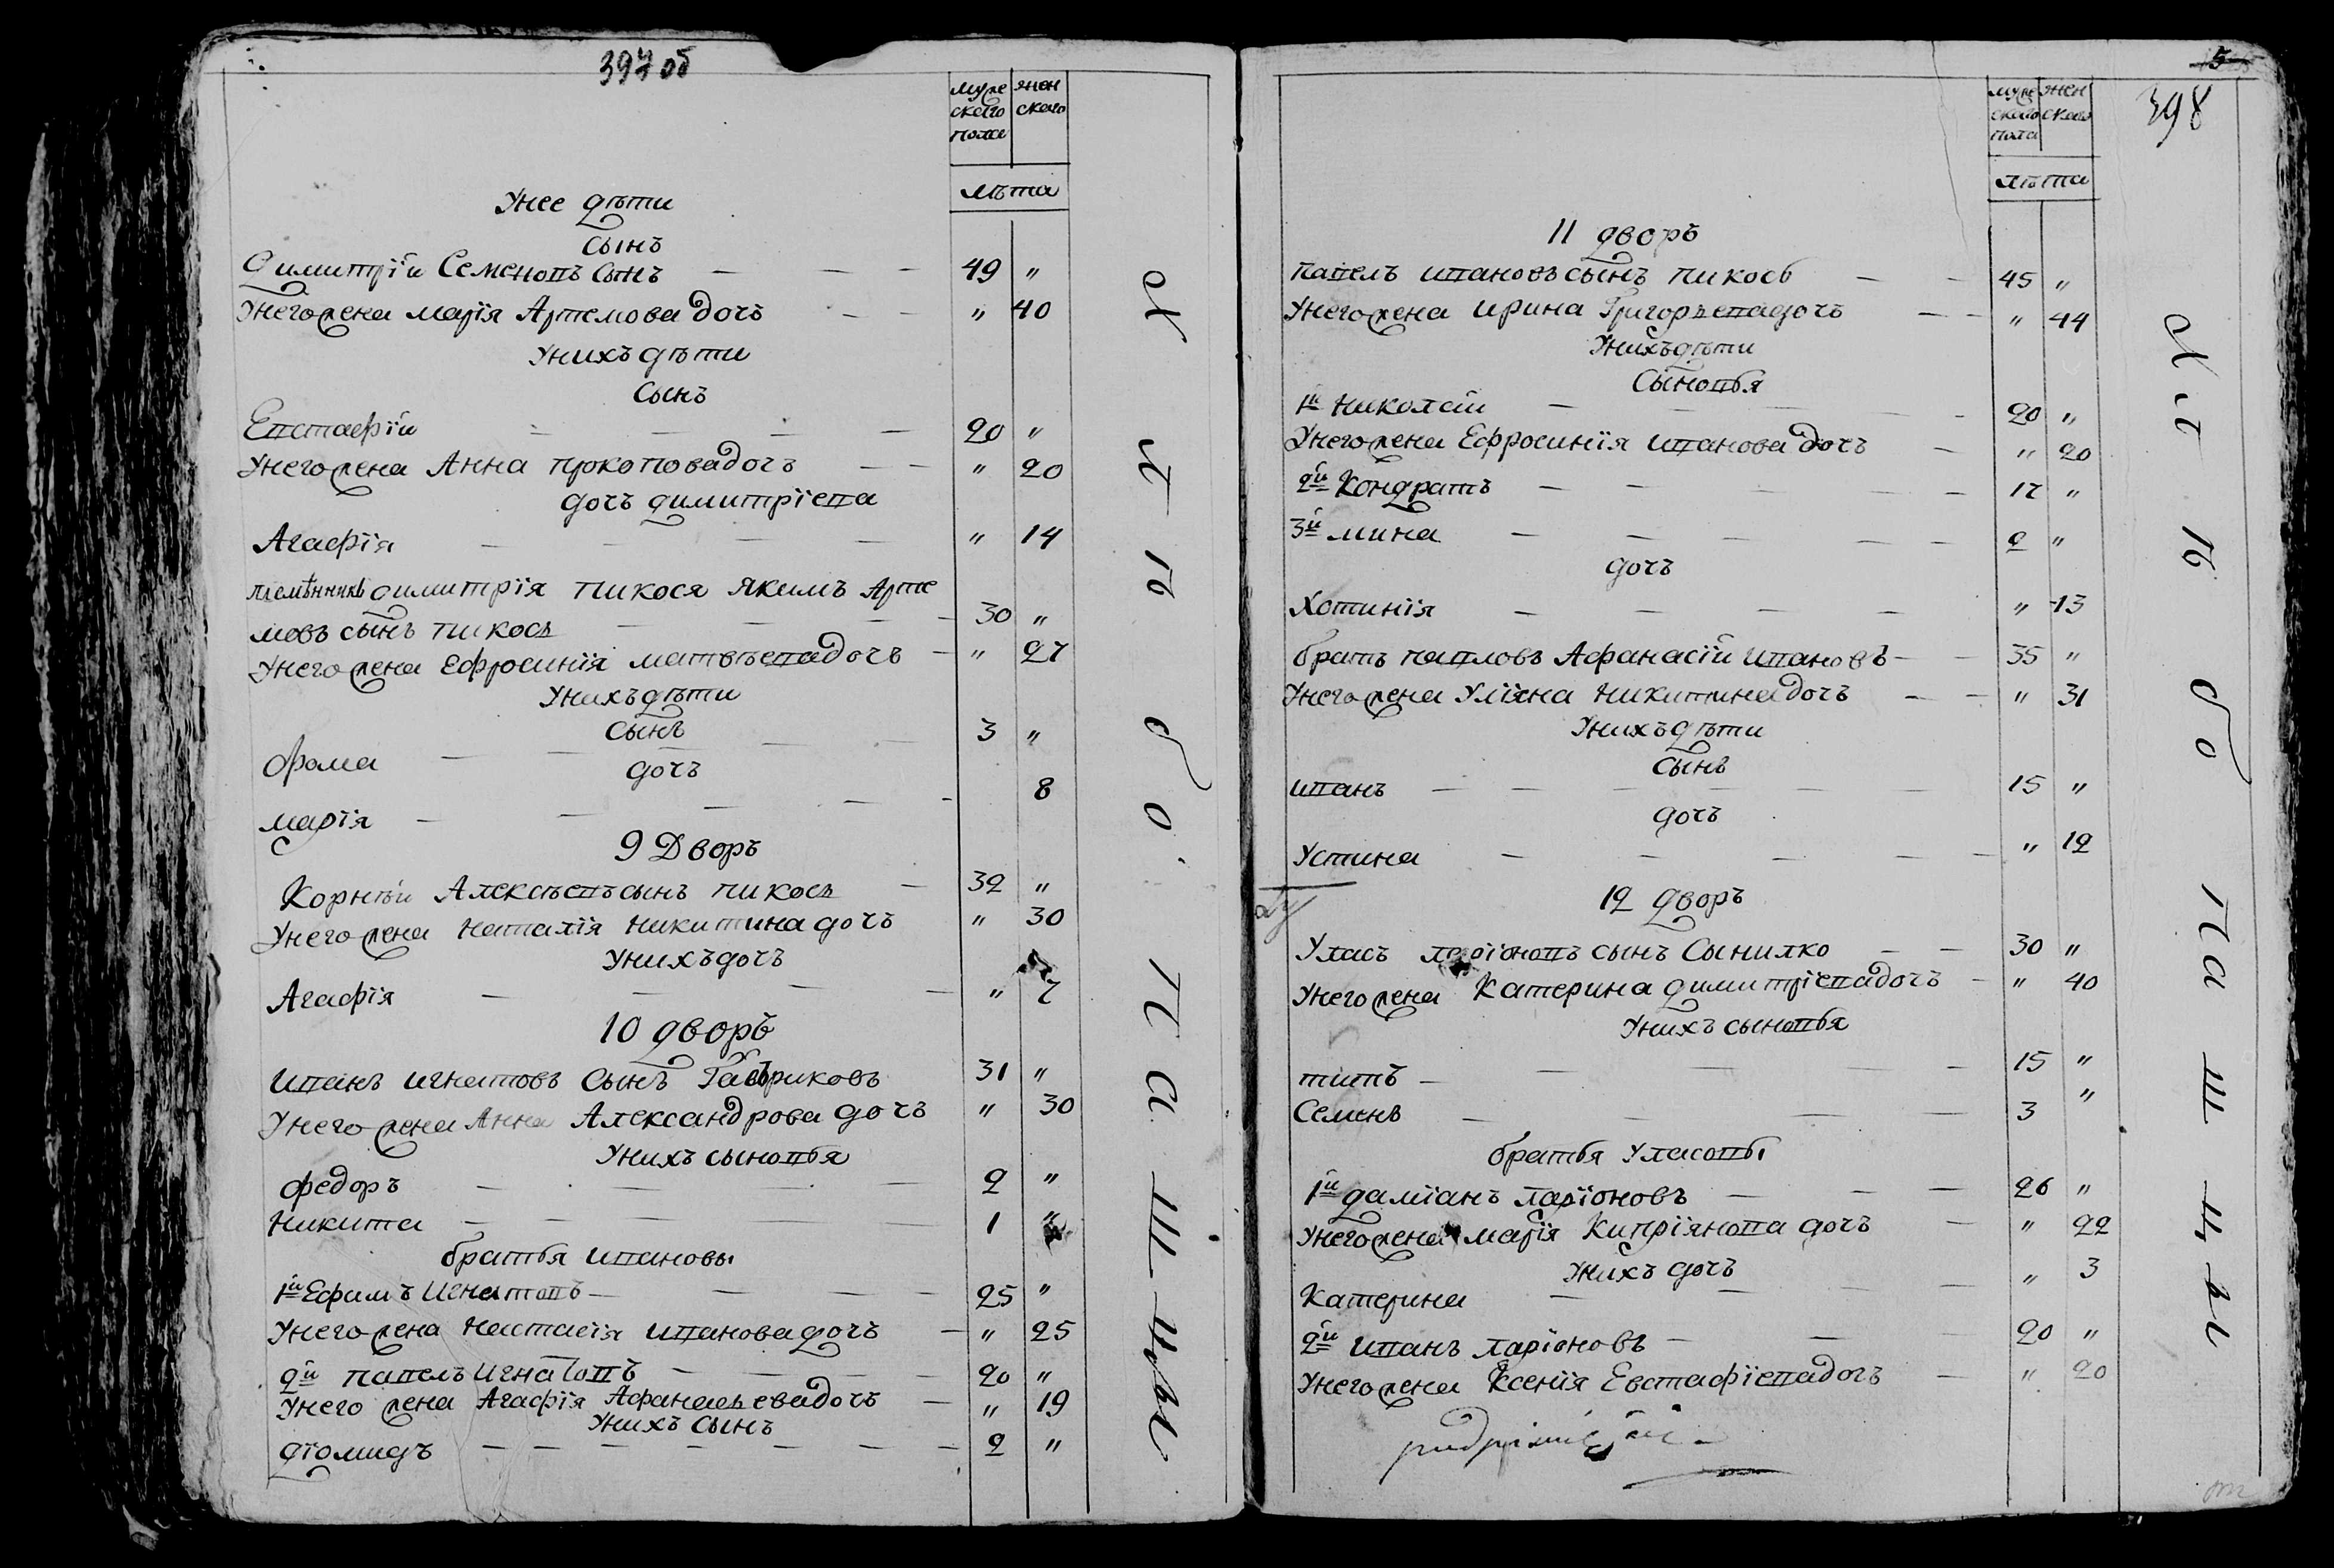 397 об
муже ского пола
жен ского
лѣта
У нее дѣти
Сынъ
Димитрїи Семеновъ Сынъ — — — 49 "
У него жена марїя Артемова дочь — — " 40
У нихъ дѣти
Сынъ
Евстафїи — — — — 20 "
У него жена Анна прокопова дочь — — " 20
дочь димитрїева
Агафїя — — — — " 14
племѣнникъ димитрїя пикося Якимъ Арте
мовъ сынъ пикось — — — — 30 "
У него жена Ефросинїя матвѣева дочь — " 27
У нихъ дѣти
Сынъ
Фома — — — — — 3 "
дочь
марїя — — — — — 8
9 Дворъ
Корнѣи Алексѣевъ сынъ пикось — 32 "
У него жена наталїя никитина дочь " 30
У нихъ дочь
Агафїя — — — — " 7
10 дворъ
иванъ игнатовъ Сынъ Гавриковъ 31 "
У него жена Анна Александрова дочь " 30
У нихъ сыновья
федоръ — — — — 2 "
Никита — — — — — 1 "
братья ивановы
1й Ефимъ Игнатовъ — — — — 25 "
У него жена настасїя иванова дочь — " 25
2й павелъ Игнатовъ — — — — 20 "
У него жена Агафїя Афанасьева дочь — " 19
У нихъ Сынъ
дїомидъ — — — — — — — 2 "
Х л ѣ б о п а ш ц ы
5
398
муже ского пола
жен ского
лѣта
11 дворъ
павелъ ивановъ сынъ пикось — — 45 "
У него жена ирина Григорьева дочь — — " 44
У нихъ дѣти
Сыновья
1й николай — — — — — 20 "
У него жена Ефросинїя иванова дочь — " 20
2й Кондратъ — — — — — 17 "
3й мина — — — — — 2 "
дочь
Хотинїя — — — — " 13
братъ павловъ Афанасїи ивановъ — — 35 "
У него жена Улїяна никитина дочь — — " 31
У нихъ дѣти
Сынъ
иванъ — — — — — — 15 "
дочь
Устина — — — — — " 12
12 дворъ
Уласъ ларїоновъ сынъ Сынилко — — 30 "
У него жена Катерина димитрїева дочь — " 40
У нихъ сыновья
титъ — — — — — 15 "
Семенъ — — — — 3 "
братья Уласовы
1й дамїанъ ларїоновъ — — — 26 "
У него жена марїя Кипрїянова дочь — " 22
У нихъ дочь
Катерина — — — — " 3
2й иванъ ларїоновъ — — — 20 "
У него жена Ксенїя Евстафїева дочь — " 20
Х л ѣ б о п а ш ц ы